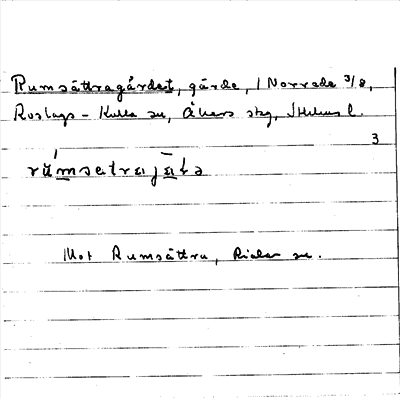 Rumsättragärdet, gärde, i Norreda 3/8,
Roslags-Kulla sn, Åkers skg, Sthlms l.
3
Mot Rumsättra, Riala sn.